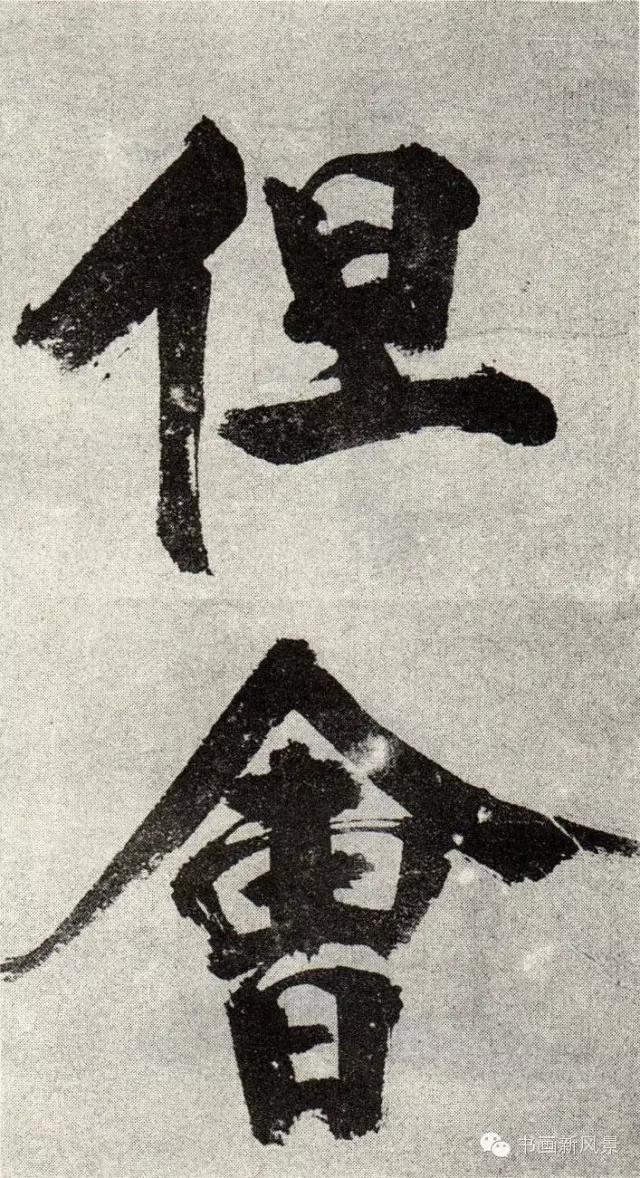 但
會
书画新风景